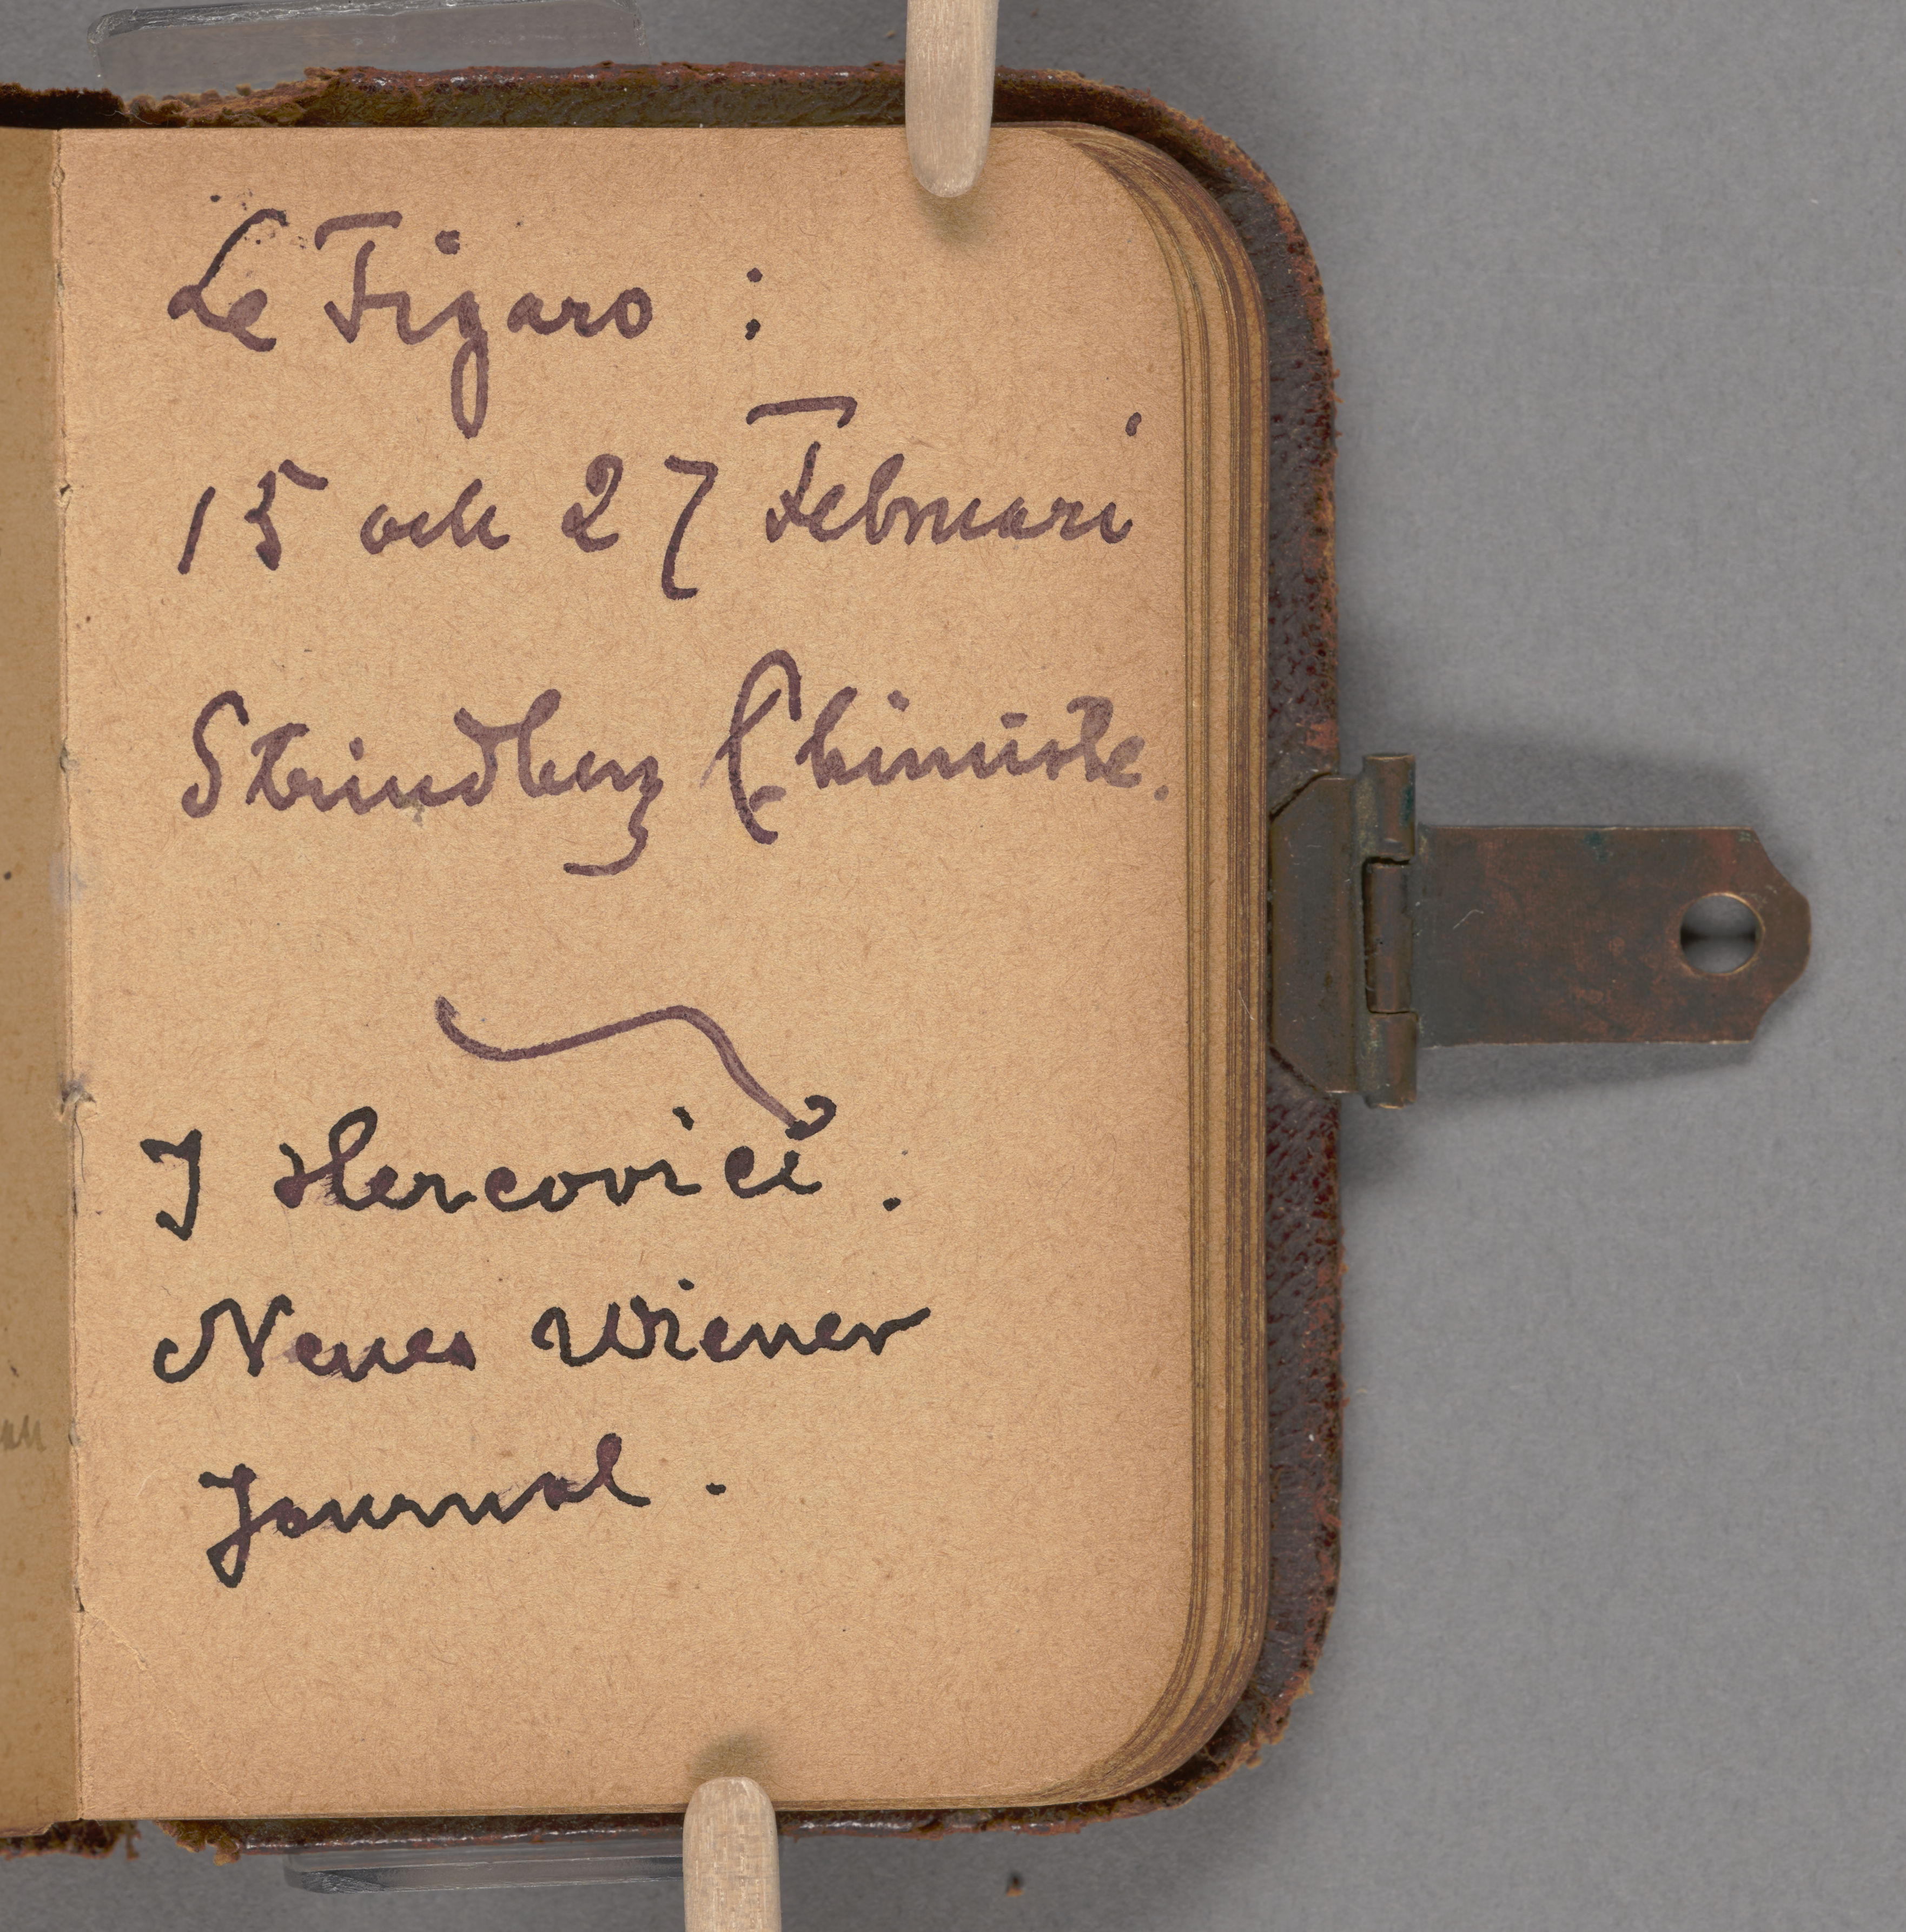 Le Figaro :
15 och 27 Februari
Strindberg Chimiste.
J Hercovici .
Neues Wiener
Journal .